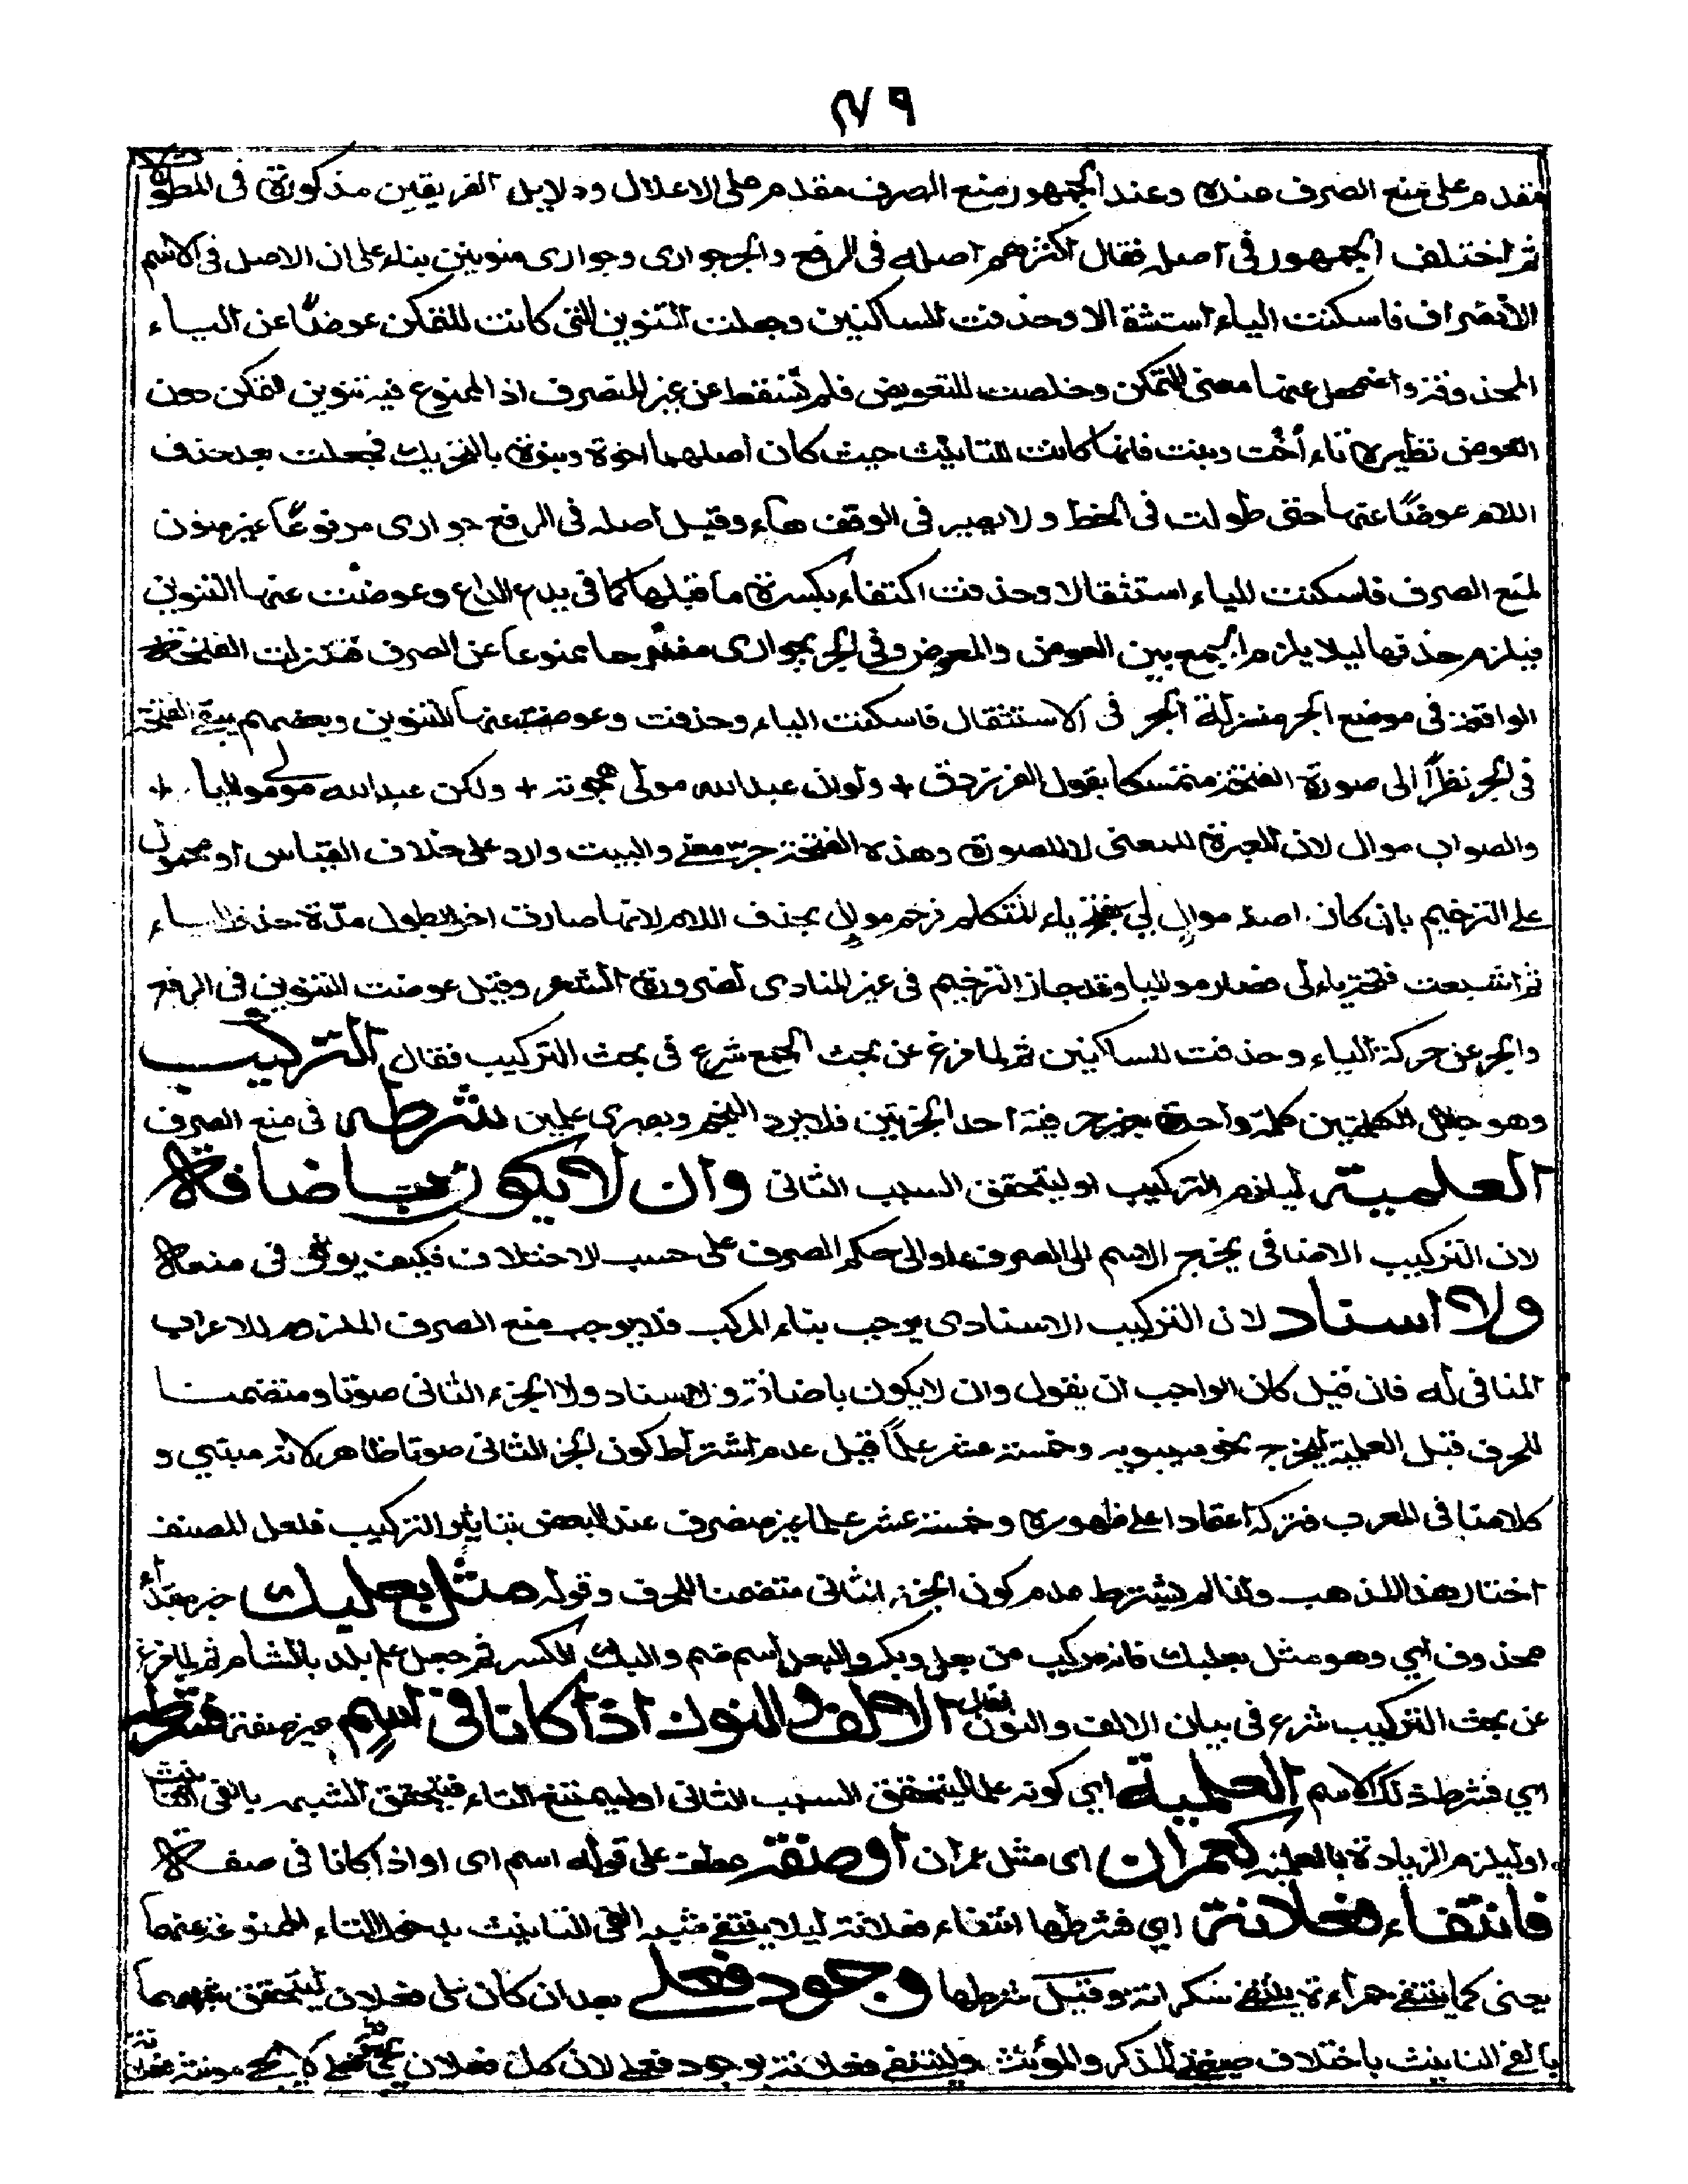 ٧٩
مقدم على منع الصرف عنده وعند الجمهور منع الصرف مقدم على الاعلال ودلايل الفريقين مذكورة فى المطو
ثم اختلف الجمهور فى اصله فقال اكثرهم اصله فى الرفع والجر جوارى وجوارى منونين بناء على ان الاصل فى الاسم
الانصراف فاسكنت الياء استثقالا وحذفت للساكنين وجعلت التنوين التى كانت للتمكن عوضًا عن الياء
المحذوفة واضمحل عنها معنى التمكن وخلصت للتعويض فلم تسقط عن غير المنصرف اذ الممنوع فيه تنوين التمكن دون
العوض نظيره تاء أخت وبنت فانها كانت للتانيث حيث كان اصلهما اخوة وبنوة بالتحريك فجعلت بعد حذف
اللام عوضًا عنها حتى طولت فى الخط ولا يصير فى الوقف هاء وقيل اصله فى الرفع جوارى مرفوعًا غير منون
لمنع الصرف فاسكنت الياء استثقالا وحذفت اكتفاء بكسرة ما قبلها كما فى يدع الداع وعوضت عنها التنوين
فيلزم حذفها ليلا يلزم الجمع بين العوض والمعوض وفى الجر بجوارى مفتوحا ممنوعا عن الصرف فنزلت الفتحة
الواقعة فى موضع الجر منزلة الجر فى الاستثقال فاسكنت الياء وحذفت وعوضت عنها التنوين وبعضهم يبقى الفتحة
فى الجر نظرًا الى صورة الفتحة متمسكا بقول الفرزدق + ولو كان عبد الله مولى هجوته + ولكن عبد الله مولى مواليا +
والصواب موال لان العبرة للمعنى لا للصورة وهذه الفتحة جر معنى والبيت وارد على خلاف القياس او محمول
على الترخيم بان كان اصله موال لى بفتح ياء المتكلم فرخم موالى بحذف اللام لانها صارت اخر الطول مدّة حذف الياء
ثم اشبعت فتحة ياء لى فصار مواليا وقد جاز الترخيم فى غير المنادى لضرورة الشعر وقيل عوضت التنوين فى الرفع
والجر عن حركة الياء وحذفت للساكنين ثم لما فرغ عن بحث الجمع شرع فى بحث التركيب فقال التركيب
وهو جعل الكلمتين كلمة واحدة بغير حرفية احد الجزئين فلا يرد النجم وبصرى علمين شرطه فى منع الصرف
العلمية ليلزم التركيب او ليتحقق السبب الثانى وان لا يكون باضافة
لان التركيب الاضافى يخرج الاسم الى الصرف او الى حكم الصرف على حسب الاختلاف فكيف يوثر فى منعه
ولا اسناد لان التركيب الاسنادى يوجب بناء المركب فلا يوجب منع الصرف الملزم للاعراب
المنافى له فان قيل كان الواجب ان يقول وان لا يكون باضافة ولا اسناد ولا الجزء الثانى صوتا ومتضمنا
للحرف قبل العلمية ليخرج نحو سيبويه وخمسة عشر علمًا قيل عدم اشتراط كون الجزء الثانى صوتا ظاهر لانه مبنى و
كلامنا فى المعرب فتركه اعتمادا على ظهوره وخمسة عشر علما غير منصرف عند البعض بتاثير التركيب فلعل المصنف
اختار هذا المذهب ولذا لم يشترط عدم كون الجزء الثانى متضمنا للحرف وقوله مثل بعلبك خبر مبتداء
محذوف اى وهو مثل بعلبك فانه مركب من بعل وبك والبعل اسم صنم والبك الكسر ثم جعل علم بلد بالشام ثم لما فرغ
عن بحث التركيب شرع فى بيان الالف والنون فقال الالف والنون اذا كانا فى اسم غير صفة فشرطه
اى فشرط ذلك الاسم العلمية اى كونه علما ليتحقق السبب الثانى او ليمتنع التاء فيتحقق الشبه بالفى التانيث
او ليلزم الزيادة بالعلمية كعمران اى مثل عمران او صفة عطف على قوله اسم اى او اذا كانا فى صفة
فانتفاء فعلانة اى فشرطها انتفاء فعلانة ليلا ينتفى شبه الفى التانيث بدخول التاء الممنوعة عنهما
يعنى كما ينتفى حمراءة ينتفى سكرانة وقيل شرطها وجود فعلى بعد ان كان على فعلان ليتحقق شبههما
بالفى التانيث باختلاف صيغتى المذكر والمؤنث ولينتفى فعلانة بوجود فعلى لان كل فعلان مؤنثه فعلى